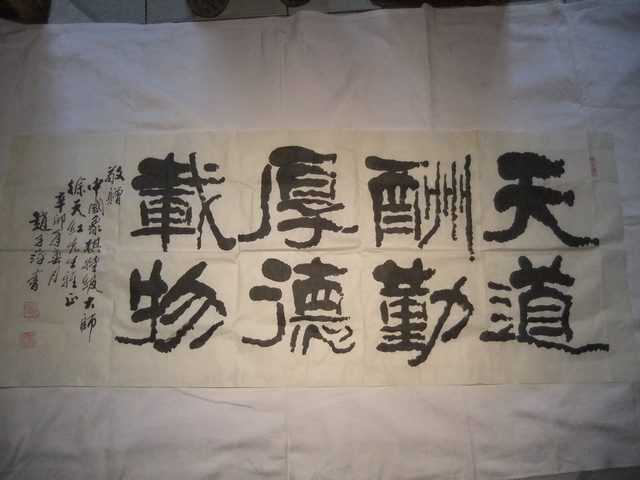 天道
酬勤
厚德
載物
敬贈
中國象棋特級大師
徐天紅先生雅正
辛卯年春月
趙
書